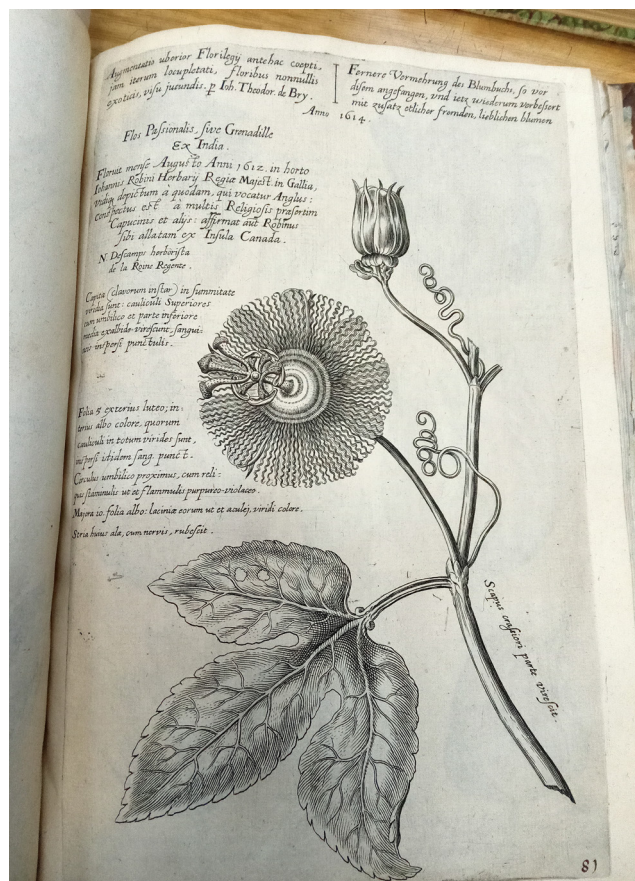 Augmentatio uberior Florilegij antehac coepti,
jam iterum locupletati, floribus nonnullis
exoticis, visu jucundis. p Ioh. Theodor. de Bry.
Fernere Vermehrung des Blumbuchs, so vor
disem angefangen, vnd ietz wiederum verbessert
mit zusatz etlicher fremden, lieblichen blumen
Anno 1614.
Flos Passionalis, sive Grenadille
Ex India.
Floruit mense Augusto Anni 1612. in horto
Iohannis Robini Herbarij Regiæ Majest. in Gallia,
depictum à quodam, qui vocatur Anglus:
conspectus est à multis Religiosis præsertim
Capucinis et alijs: affirmat aut Robinus
sibi allatam ex Insula Canada.
N. Descamps herborista
de la Roine Regente.
Capita (clavorum instar) in summitate
viridia sunt: cauliculi Superiores
cum umbilico et parte inferiore
media exalbido virescunt, sangui:
neis inspersi punctulis.
Folia 5 exterius luteo; in:
terius albo colore, quorum
cauliculi in totum virides sunt,
inspersi itidem sang. punct.
Circulus umbilico proximus, cum reli:
quis staminulis ut et flammulis purpureo-violaceo.
Majora 10. folia albo: laciniæ eorum ut et aculej, viridi colore.
Stria huius ala, cum nervis, rubescit.
Scapus crassiori parte virescit.
81